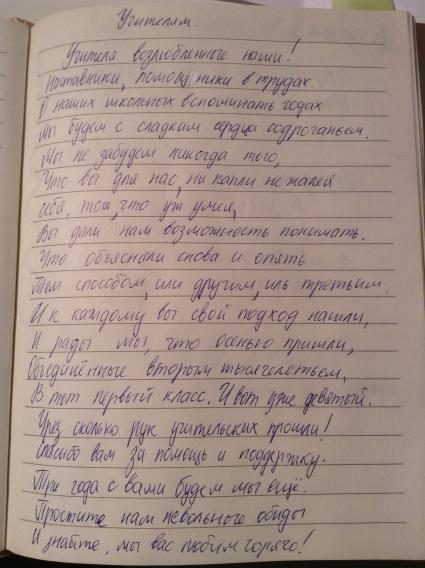 Учителям.
Учителя возлюбленные наши!
Наставники, помощники в трудах.
О наших школьных вспоминать годах
Мы будем с сладким сердца содроганьем.
Мы не забудем никогда того,
Что вы для нас, ни капли не жалея
себя, том, что уж умея,
Вы дали нам возможность понимать.
Что объясняли снова и опять
Тем способом, или другим, иль третьим,
И к каждому вы свой подход нашли,
И рады мы, что осенью пришли,
Объединённые вторым тысячелетьем,
В тот первый класс. И вот уже девятый.
Чрез сколько рук учительских прошли!
Спасибо вам за помощь и поддержку.
Три года с вами будем мы ещё.
Простите нам невольные обиды
И знайте, мы вас любим горячо!